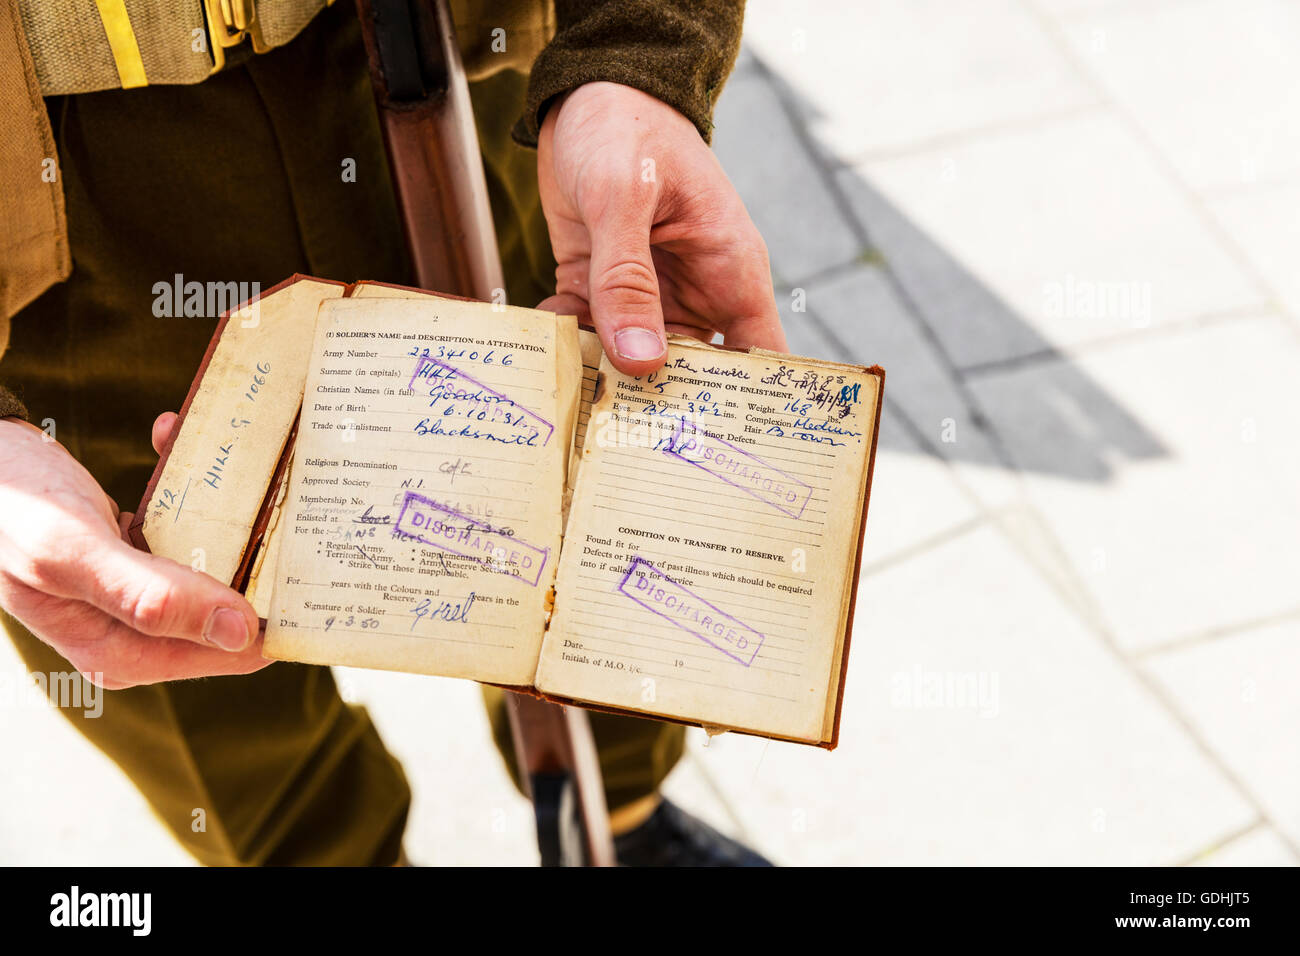 HILL G 1066
2
(I) SOLDIER'S NAME and DESCRIPTION on ATTESTATION.
Army Number 22341066
Surname (in capitals) HILL
Christian Names (in full) Gordon
Date of Birth 6.10.31.
Trade on Enlistment Blacksmith
Religious Denomination C of E
Approved Society N.I.
Membership No.
Enlisted at On 9.3.50
For the :-
• Regular Army. • Supplementary Reserve.
• Territorial Army. • Army Reserve Section D.
• Strike out those inapplicable.
For years with the Colours and years in the
Reserve.
Signature of Soldier G Hill
Date 9.3.50
DISCHARGED
DISCHARGED
service
with
DESCRIPTION ON ENLISTMENT.
Height 5 ft. 10 ins. Weight 168 lbs.
Maximum Chest 34½ ins. Complexion Medium
Eyes Blue Hair Brown
Distinctive Marks and Minor Defects
DISCHARGED
CONDITION ON TRANSFER TO RESERVE.
Found fit for
Defects or History of past illness which should be enquired
into if called up for Service
DISCHARGED
Date 19
Initials of M.O. i/c.
alamy
Image ID: GDHJT5
www.alamy.com